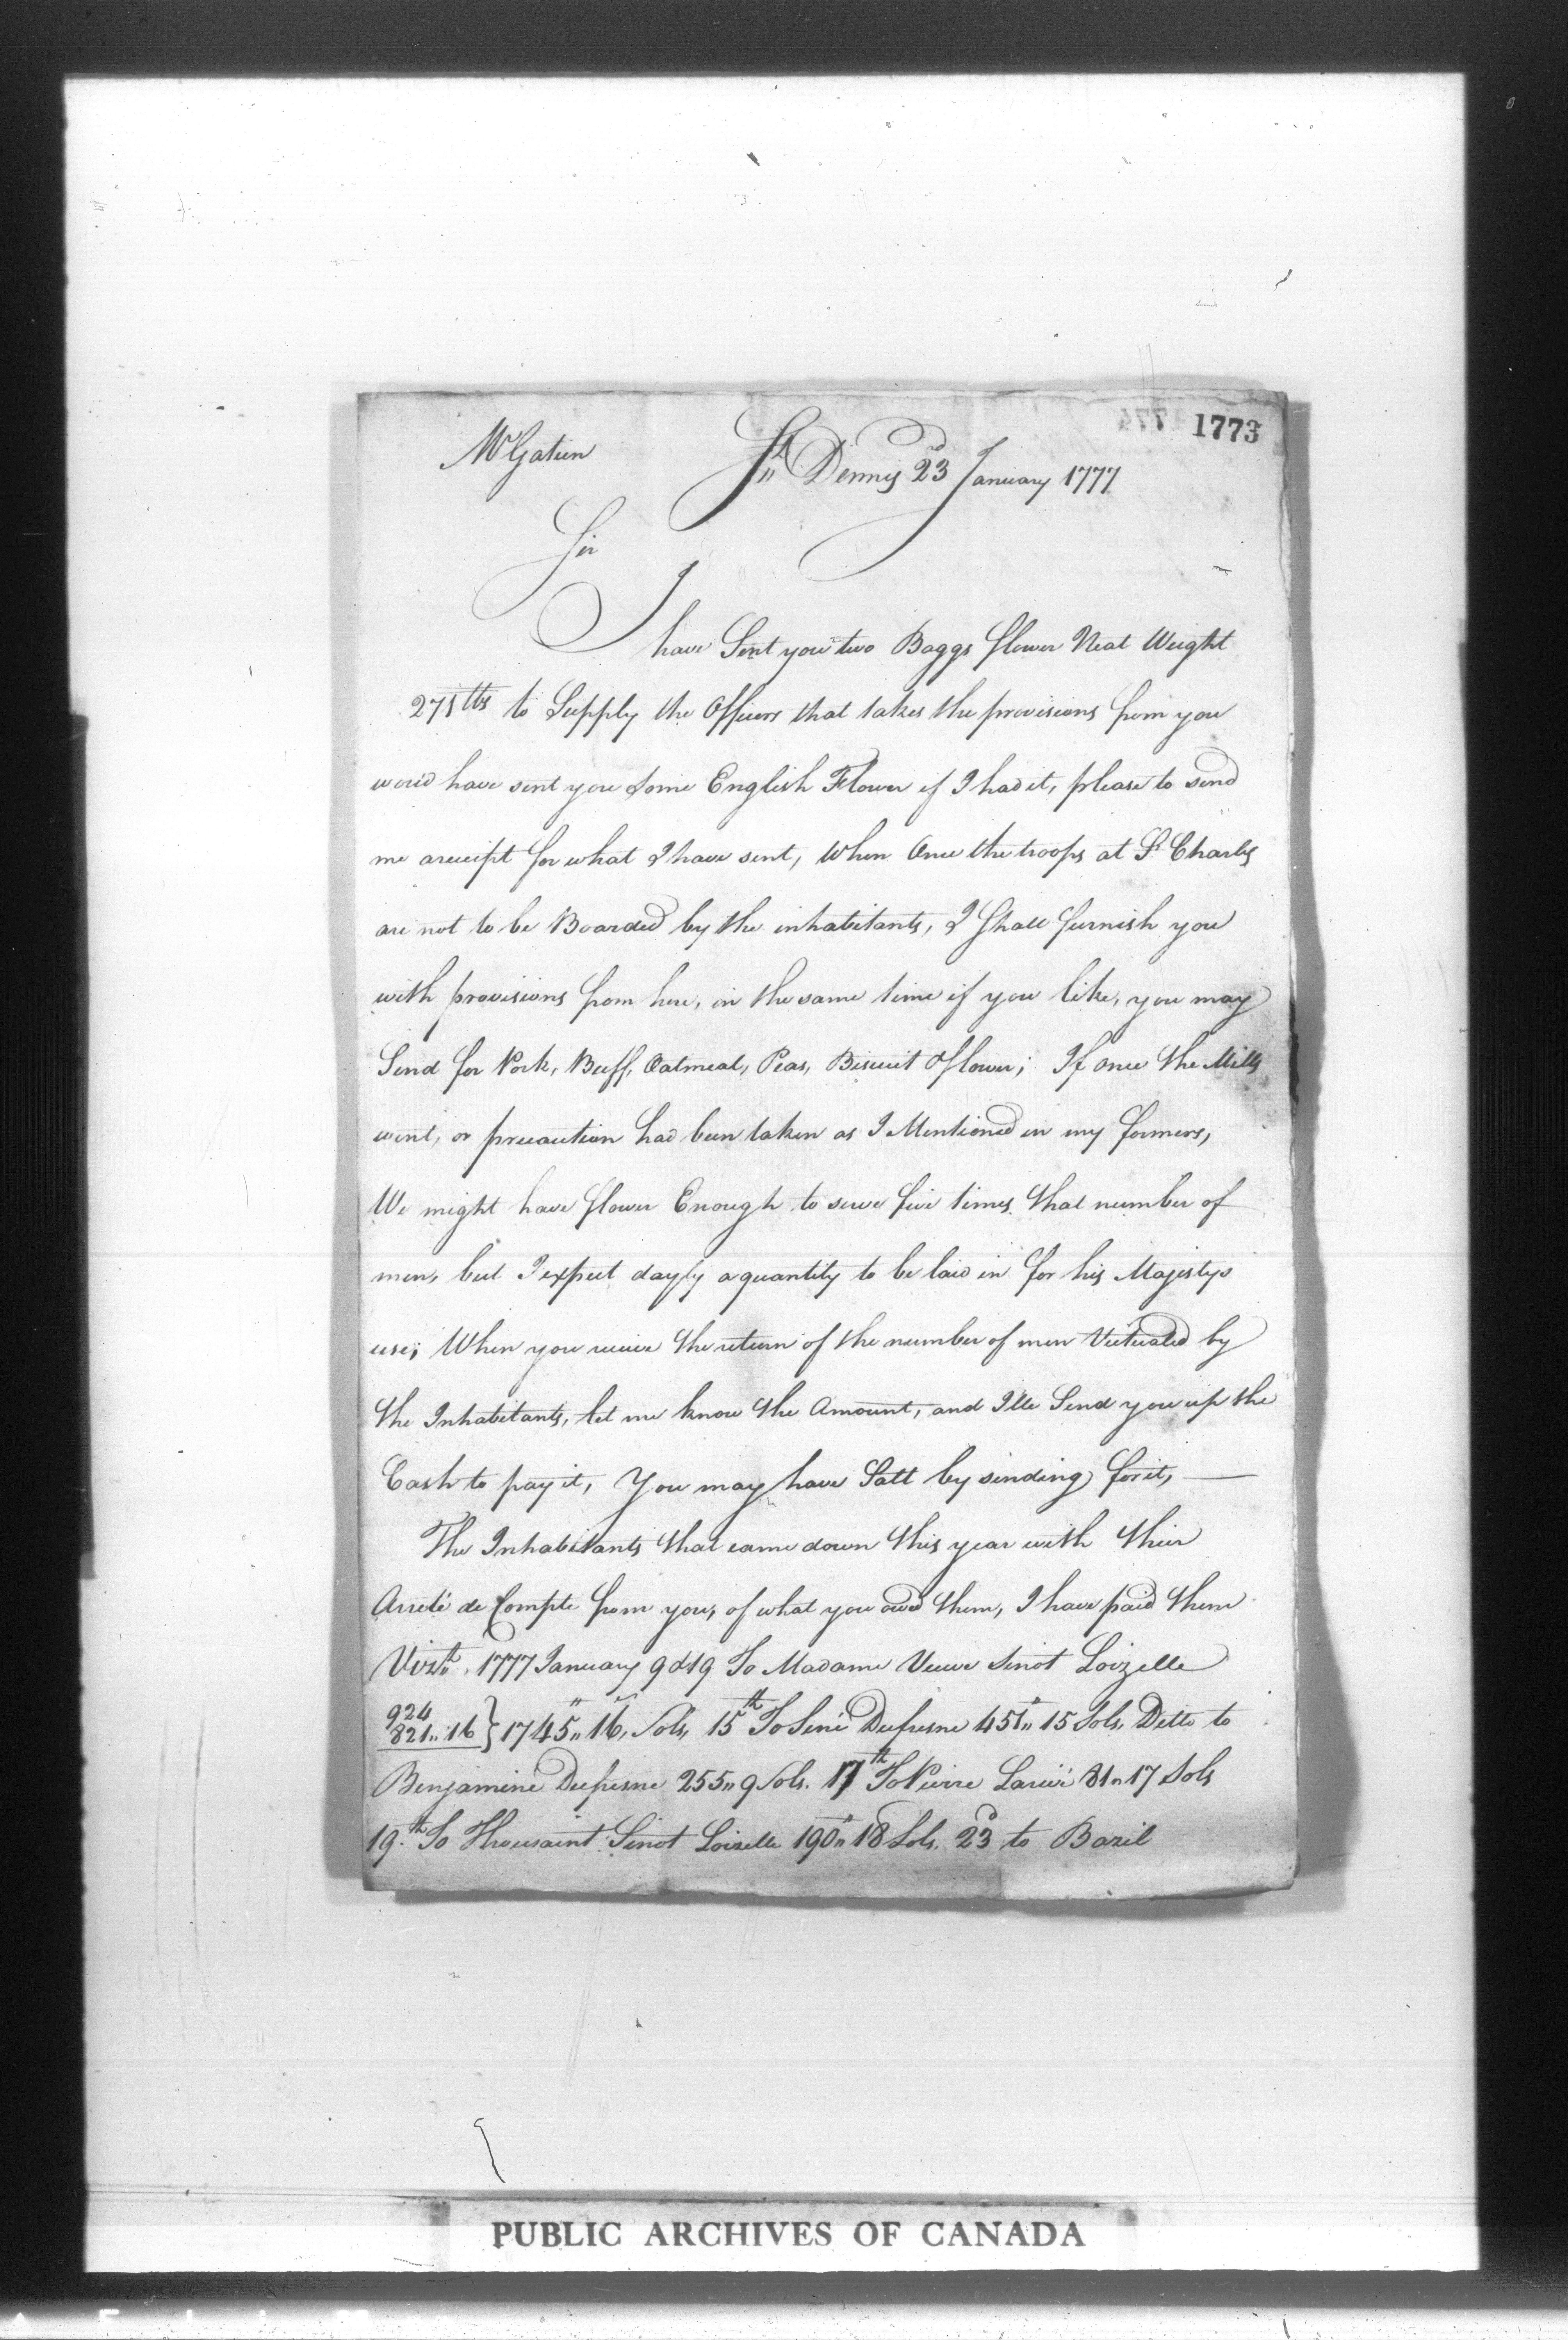 1773
Mr Gatien
St Dennis 23d January 1777
Sir
I have Sent you two Baggs flower Neat Weight
271lbs to Supply the Officers that takes the provisions from you
wou'd have sent you some English Flower if I had it, please to send
me a receipt for what I have sent, When Once the troops at St Charles
are not to be Boarded by the inhabitants, I Shall furnish you
with provisions from here, in the same time if you like, you may
Send for Pork, Beeff, Oatmeal, Peas, Biscuit & flower; If once the Mills
went, or precaution had been taken as I Mentioned in my formers,
We might have flower Enough to serve five times that number of
men, but I expect dayly a quantity to be laid in for his Majestys
use; When you receive the return of the number of men Victualed by
the Inhabitants, let me know the Amount, and I'lle Send you up the
Cash to pay it, You may have Salt by sending for it,
The Inhabitants that came down this year with their
Arreté de Compte from you, of what you owed them, I have paid them
Vizt. 1777 January 9 & 19 To Madame Veuve Sinot Loizelle
924
821" 16 } 1745" 16, Sols, 15th To Dufresne 451" 15 Sols, Ditto to
Benjamine Dufresne 255" 9 Sols. 17th To Pierre 81" 17 Sols
19th To Thousaint Sinot Loizelle 190" 18 Sols. 23d to Bazil
PUBLIC ARCHIVES OF CANADA